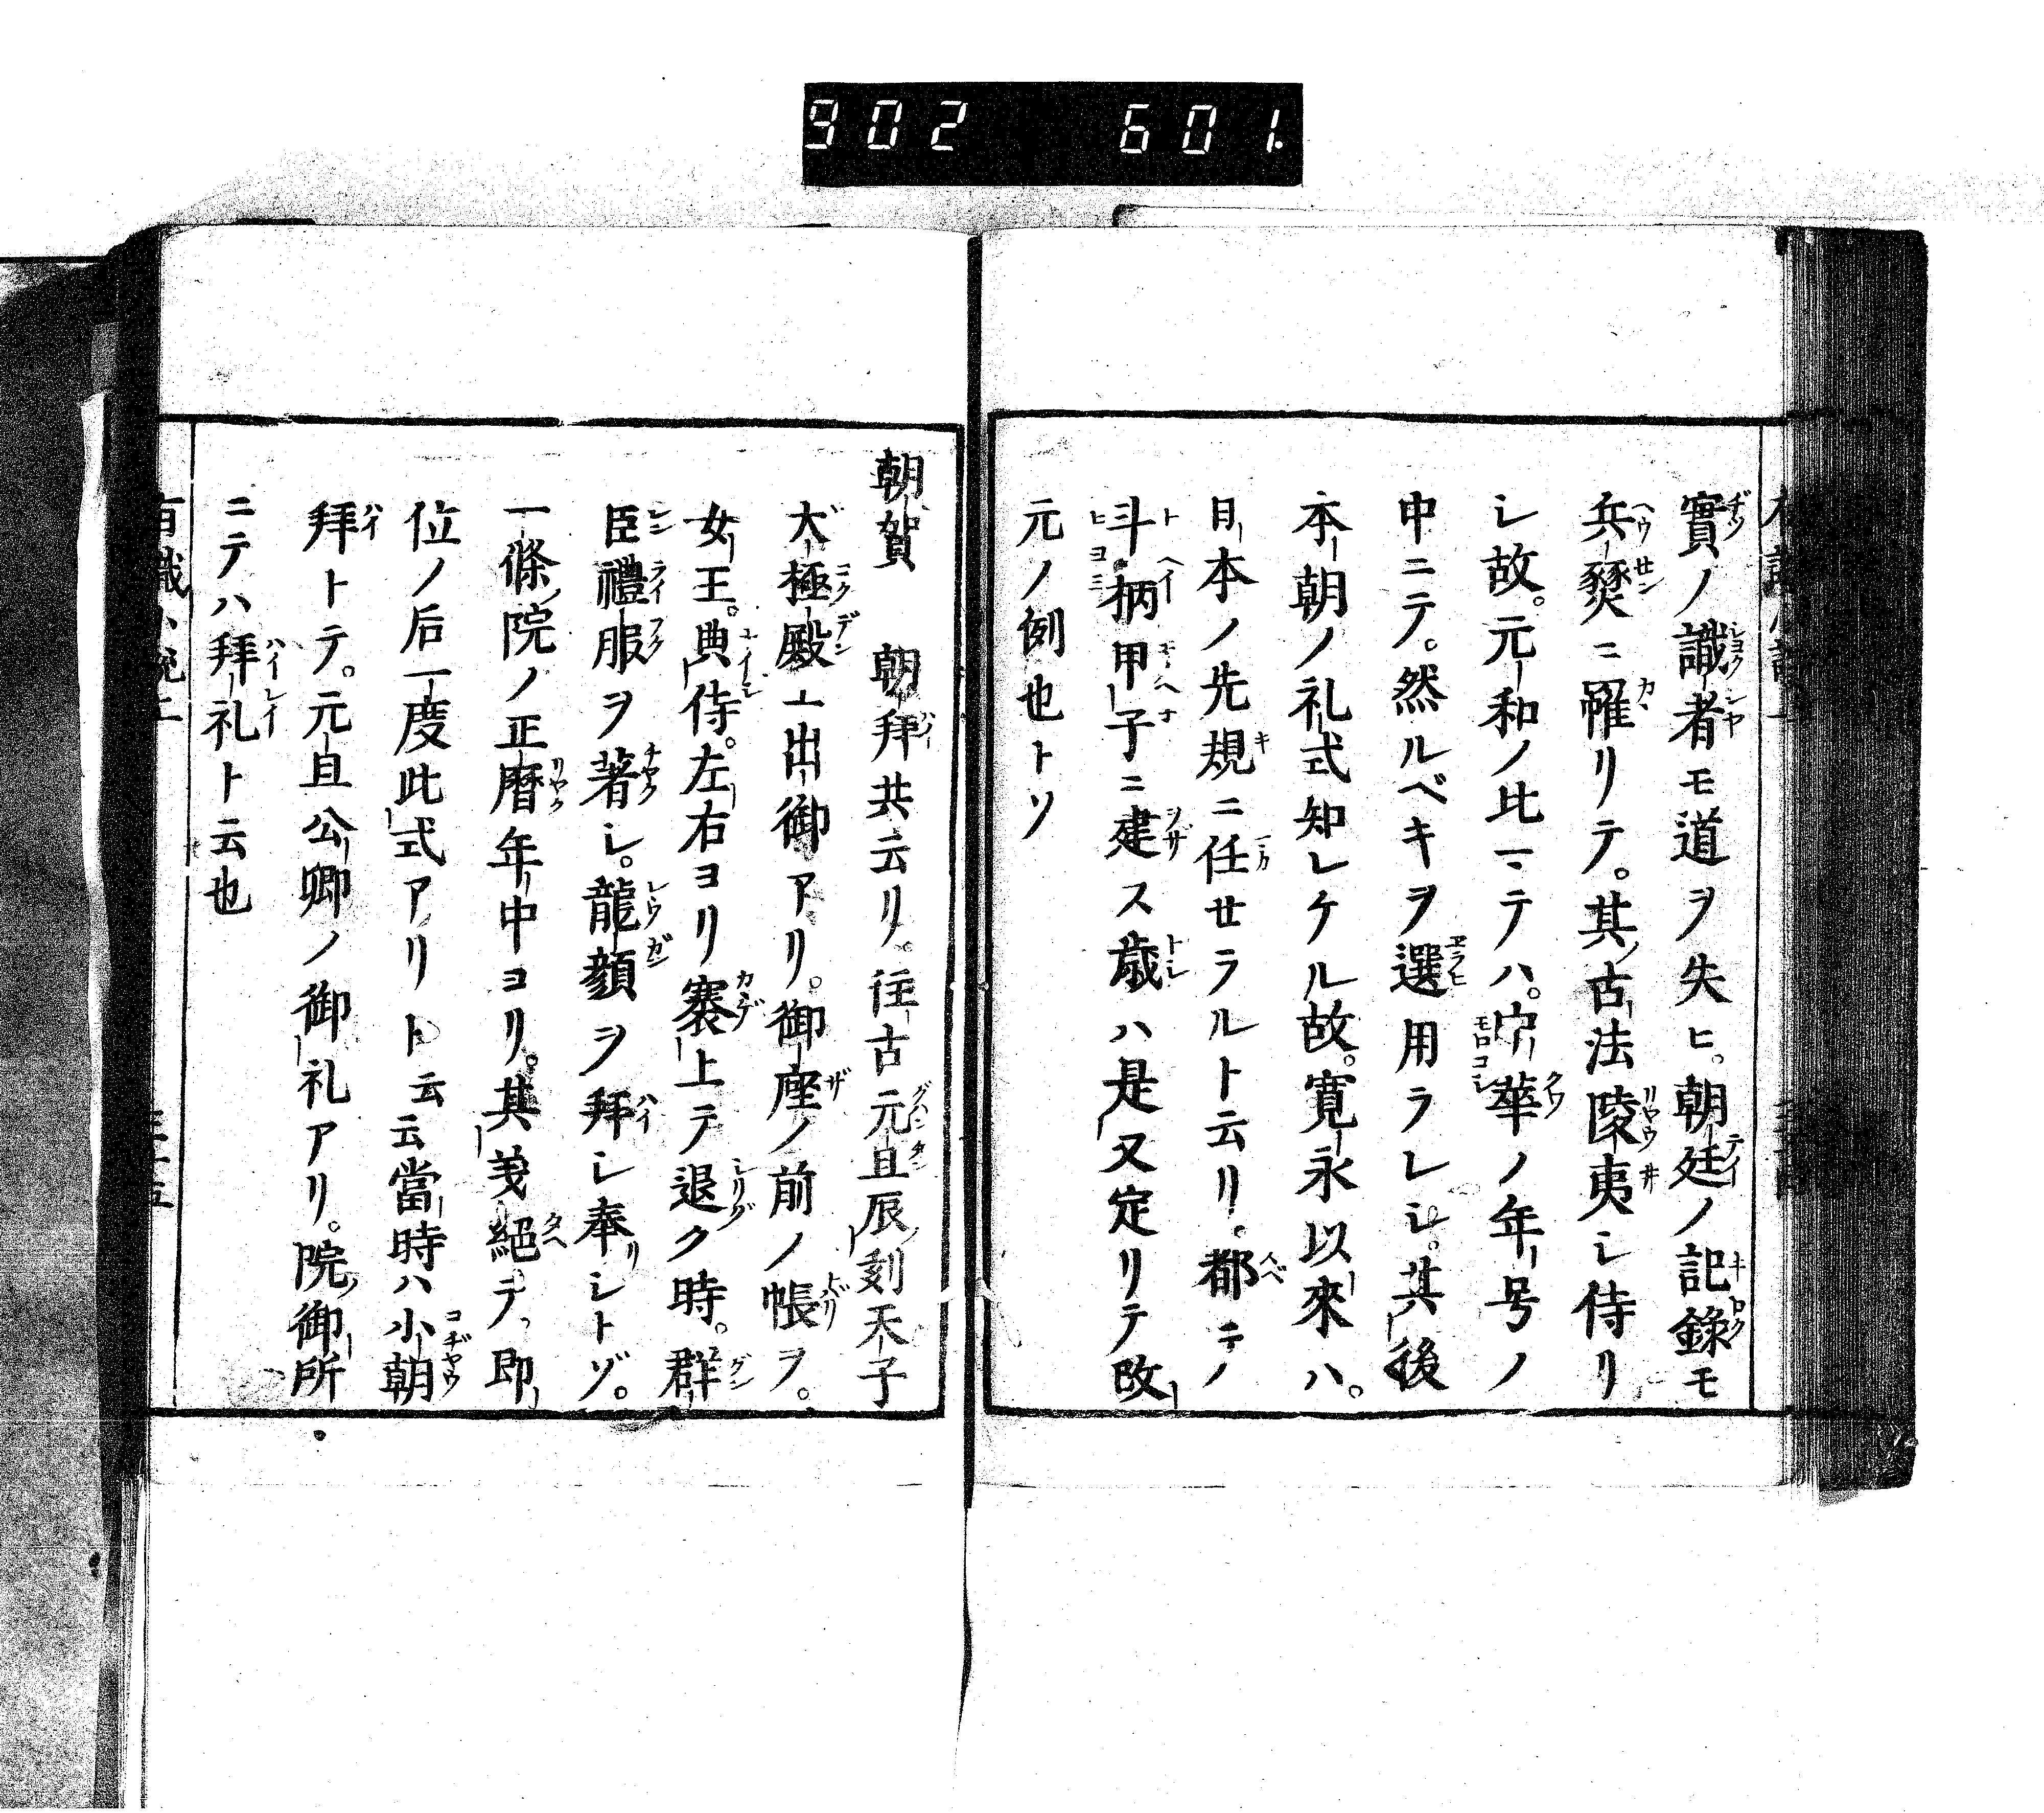 902 601
實ノ識者モ道ヲ失ヒ。朝廷ノ記錄モ
兵燹ニ罹リテ。其ノ古法陵夷シ侍リ
シ故。元和ノ比マテハ。中華ノ年号ノ
中ニテ。然ルベキヲ選用ラレシ。其後
本朝ノ礼式知レケル故。寛永以來ハ。
日本ノ先規ニ任セラルト云リ。都テノ
斗柄甲子ニ建ス歳ハ是又定リテ改
元ノ例也トソ
朝賀 朝拜共云リ。往古元旦辰ノ刻天子
大極殿ニ出御アリ。御座ノ前ノ帳ヲ。
女王。典侍。左右ヨリ褰上テ退ク時。群
臣禮服ヲ著シ。龍顏ヲ拜シ奉リシトゾ。
一條ノ院ノ正暦年中ヨリ。其義絕テ、即
位ノ后一度此式アリト云云當時ハ小朝
拜トテ。元旦公卿ノ御礼アリ。院ノ御所
ニテハ拜礼ト云也